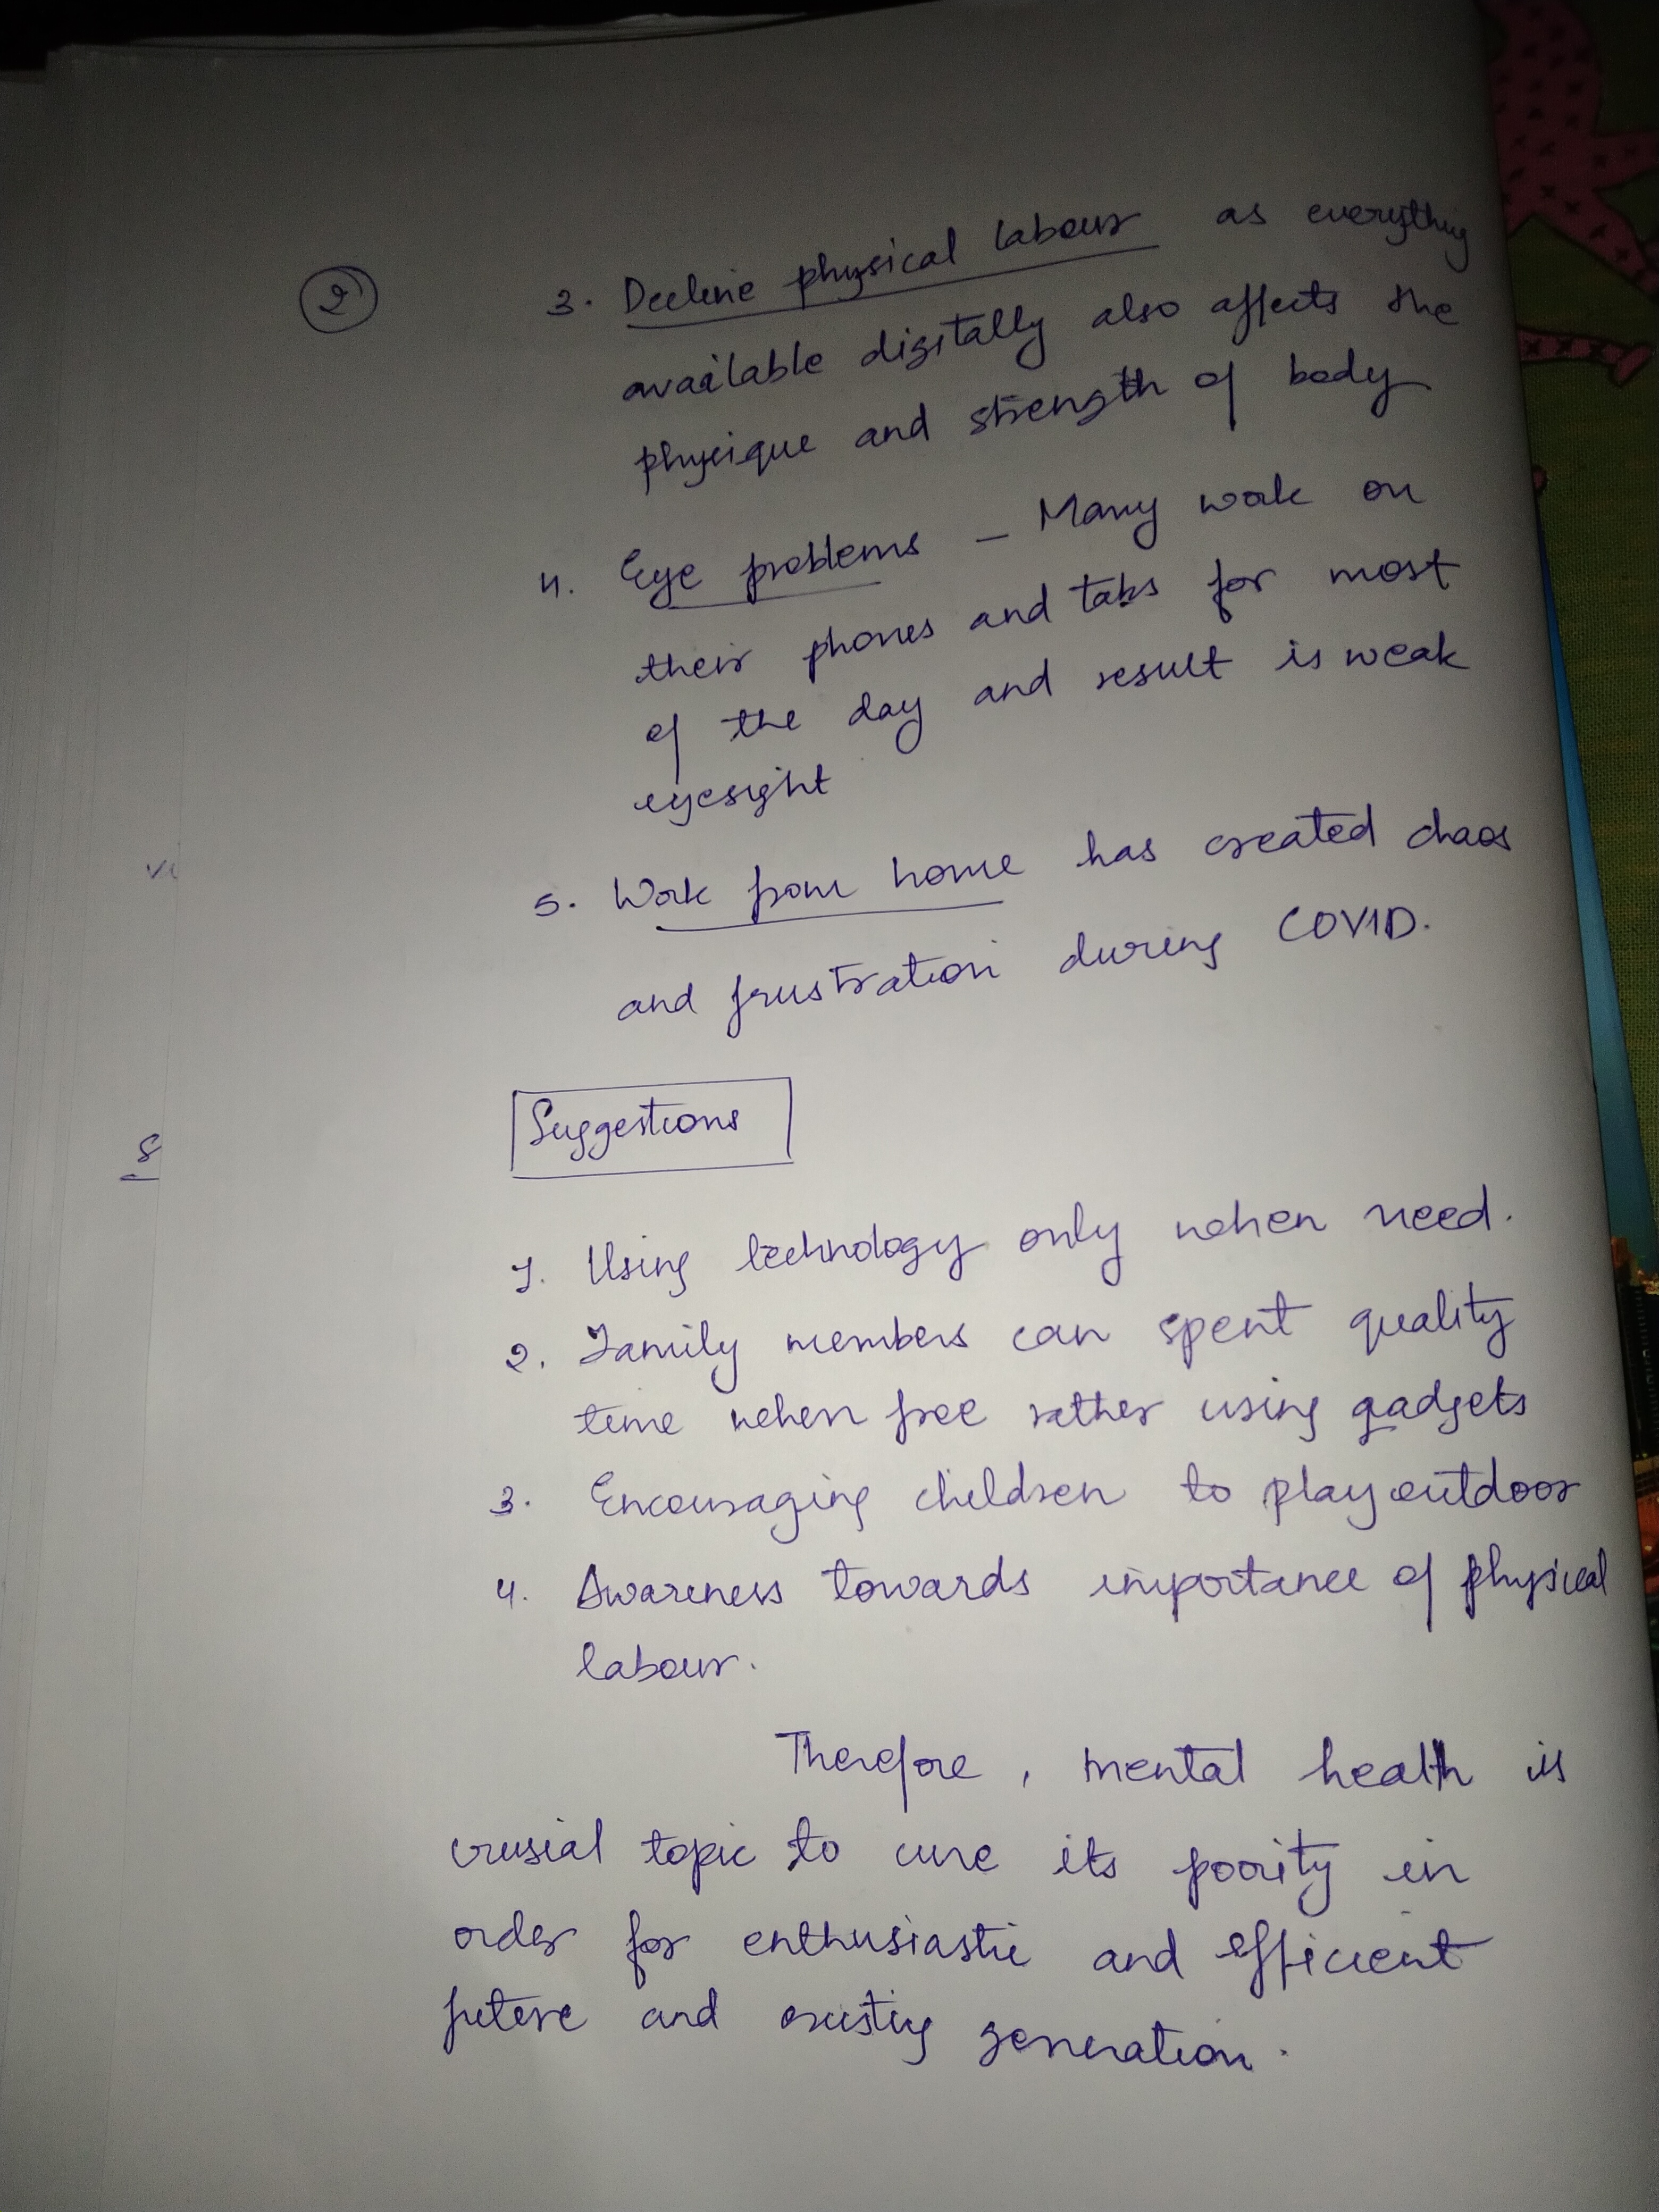 2
3. Decline physical labour as everything
available digitally also affects the
physique and strength of body
4. Eye problems — Many work on
their phones and tabs for most
of the day and result is weak
eyesight
5. Work from home has created chaos
and frustration during COVID.
Suggestions
1. Using technology only when need.
2. Family members can spent quality
time when free rather using gadgets
3. Encouraging children to play outdoor
4. Awareness towards importance of physical
labour.
Therefore, mental health is
crusial topic to cure its poority in
order for enthusiastic and efficient
future and existing generation.